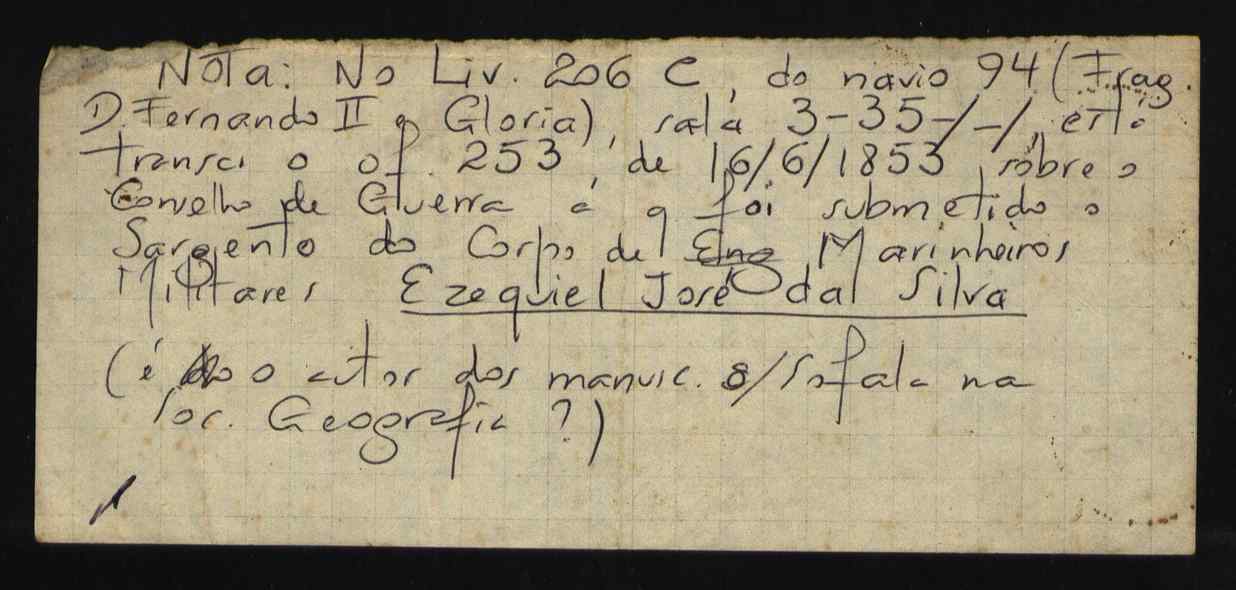 Nota: No Liv. 206 C, do navio 94 (Frag.
D. Fernando II e Gloria), sala 3-35-/-/, está
transcr. o of. 253, de 16/6/1853 sôbre o
Conselho de Guerra a q foi submetido o
Sargento do Corpo de Marinheiros
Militares Ezequiel José da Silva
(é o autor dos manusc. s/ Sofala na
Soc. Geografia ?)